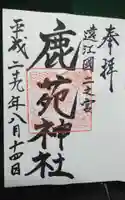 奉拝
遠江國二之宮
鹿苑神社
平成二九年八月十四日